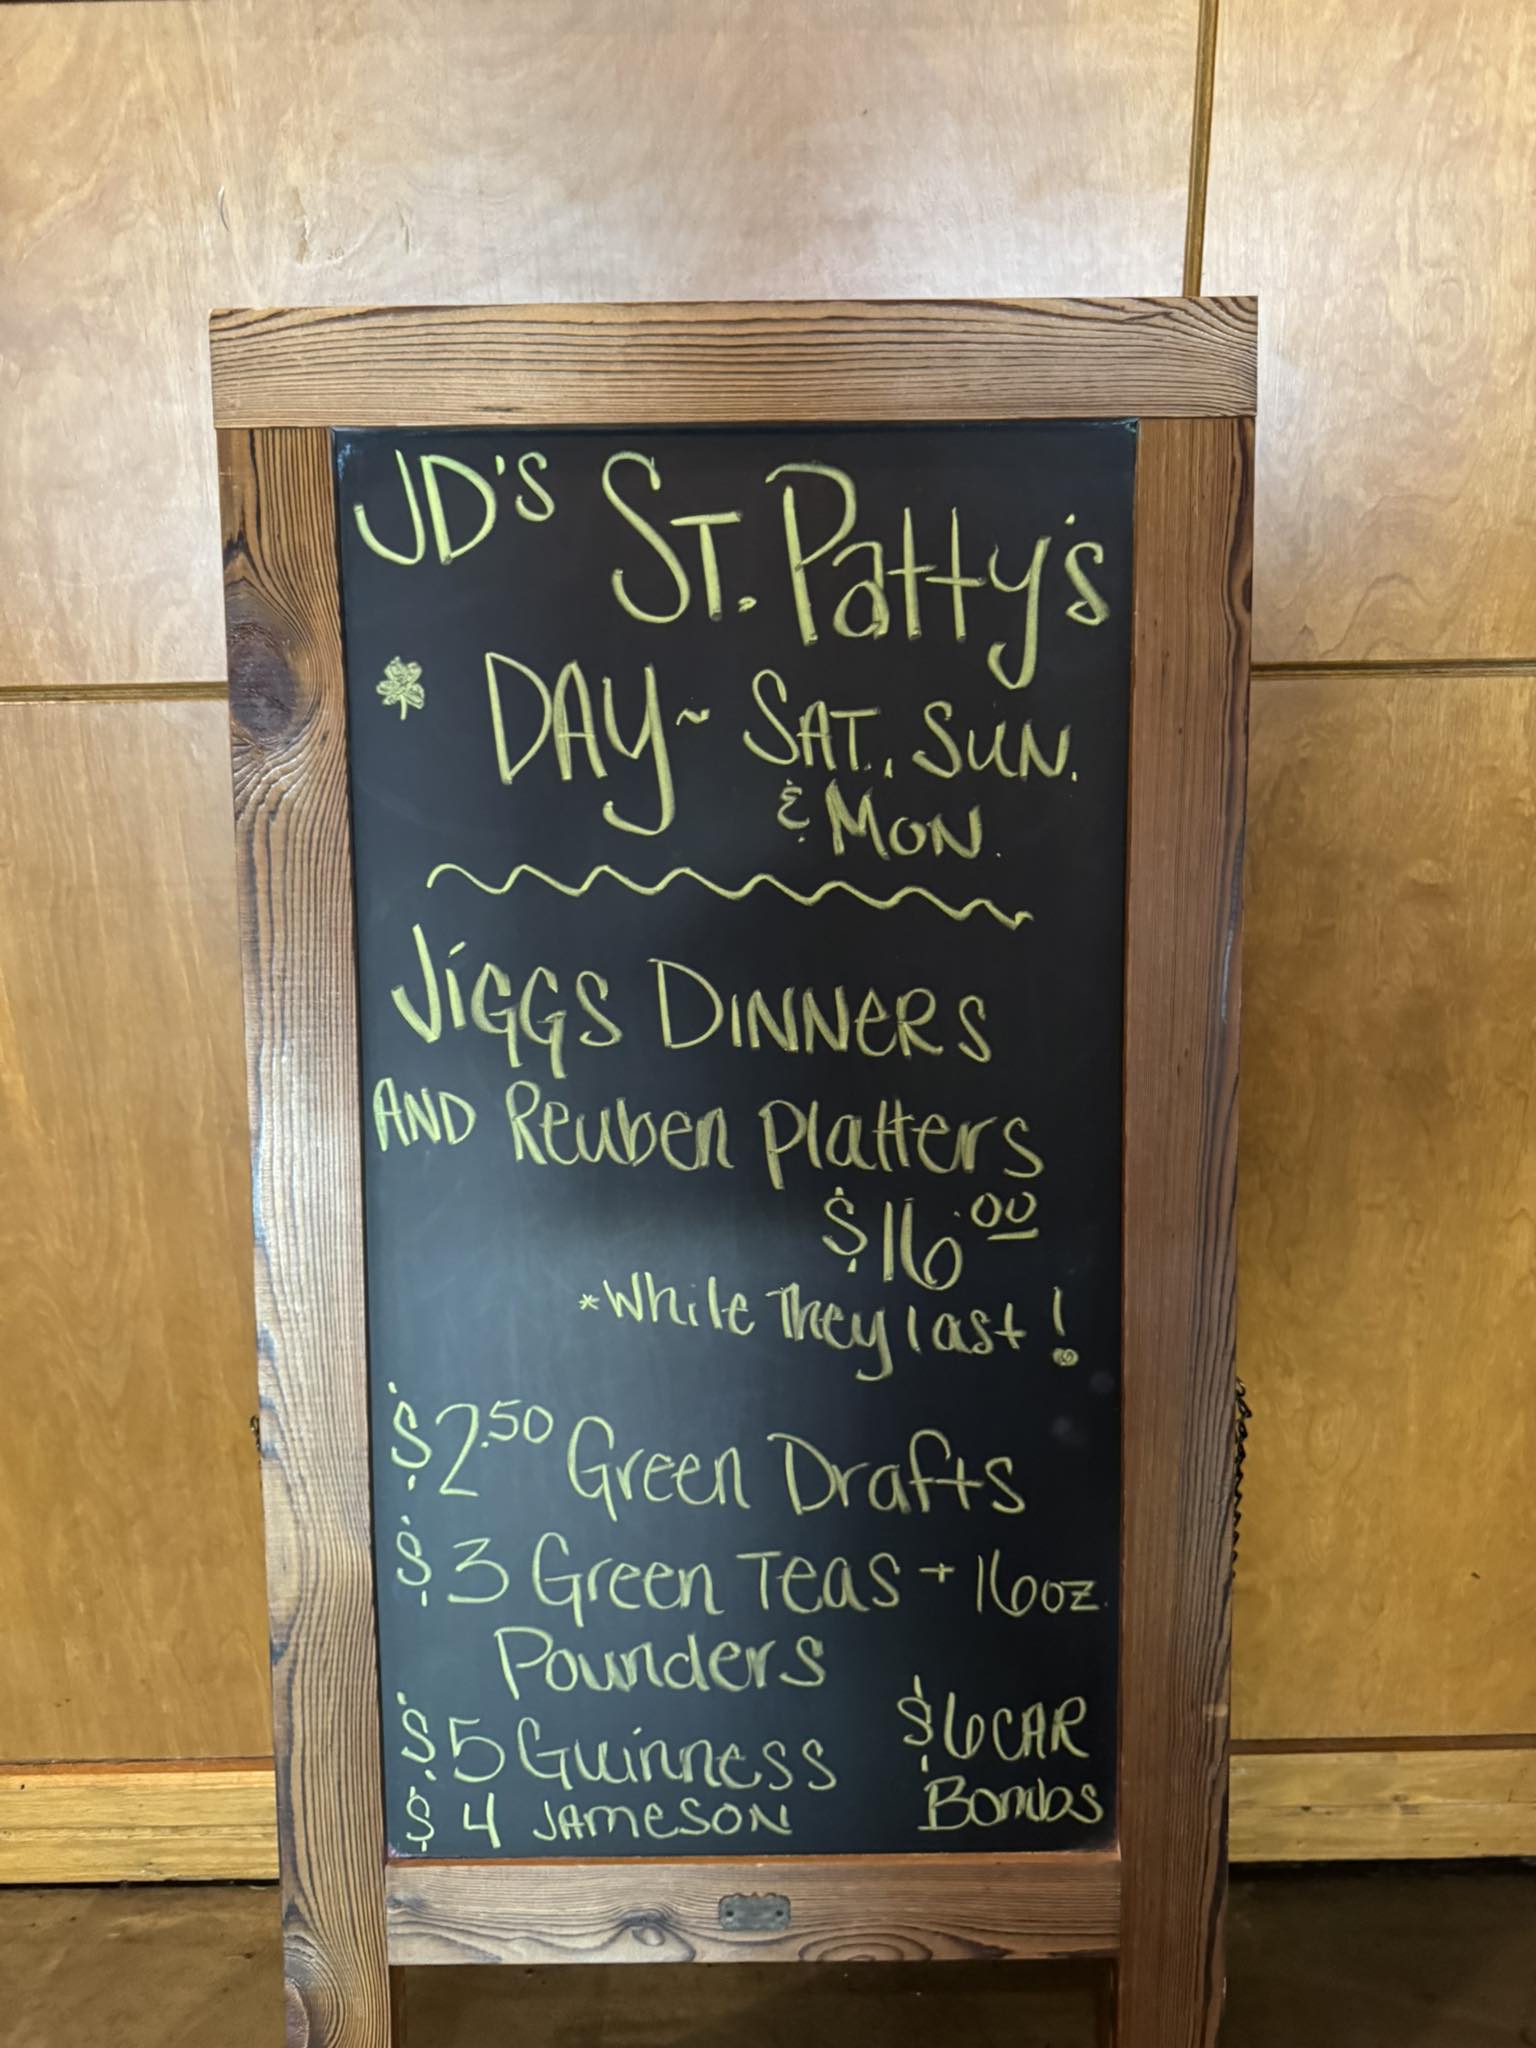 JD'S ST. Patty's
DAY ~ SAT., SUN.
& MON.
JiGGS DINNeRS
AND Reuben Platters
$16.00
*While They last!
$2.50 Green Drafts
$3 Green Teas + 16oz.
Pounders
$5 Guinness
$6 CAR
$4 JAMeSON
Bombs